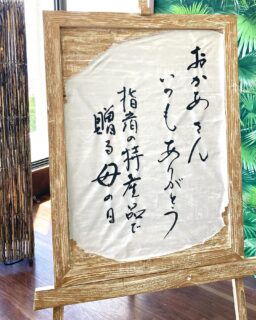 おかあさん
いつもありがとう
指宿の特産品で
贈る母の日